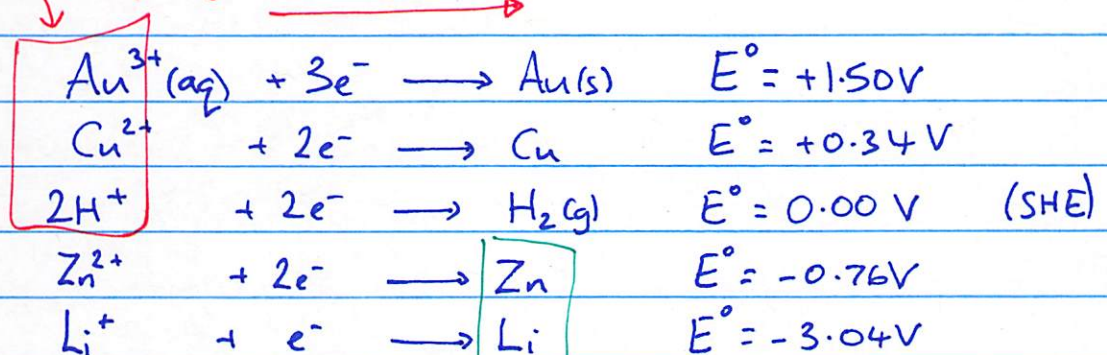 Au³⁺(aq) + 3e⁻ ⟶ Au(s) E° = +1.50V
Cu²⁺ + 2e⁻ ⟶ Cu E° = +0.34 V
2H⁺ + 2e⁻ ⟶ H₂(g) E° = 0.00 V (SHE)
Zn²⁺ + 2e⁻ ⟶ Zn E° = -0.76V
Li⁺ + e⁻ ⟶ Li E° = -3.04V